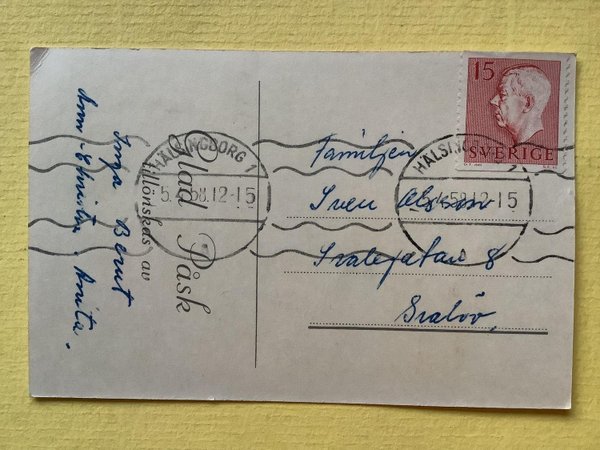 Glad Påsk
tillönskas av
Inga Bernt
Ann-Christin. Anita.
15
SVERIGE
HÄLSINGBORG 1
5. 4.58.12-15
HÄLSINGBORG 1
5. 4.58.12-15
Familjen
Sven Olsson
Svalegatan 8
Svalöv,